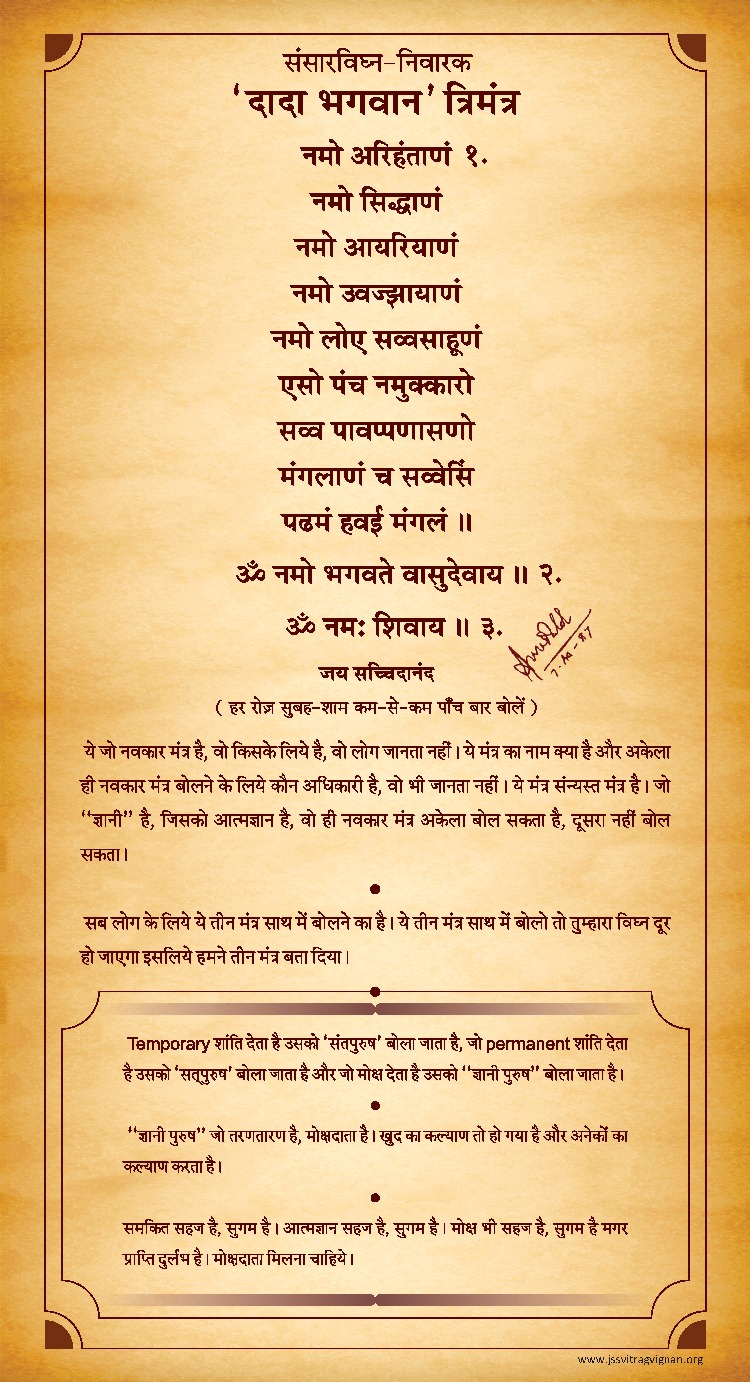 संसारविघ्न-निवारक
‘दादा भगवान’ त्रिमंत्र
नमो अरिहंताणं १.
नमो सिद्धाणं
नमो आयरियाणं
नमो उवज्झायाणं
नमो लोए सव्वसाहूणं
एसो पंच नमुक्कारो
सव्व पावप्पणासणो
मंगलाणं च सव्वेसिं
पढमं हवई मंगलं ॥
ॐ नमो भगवते वासुदेवाय ॥ २.
ॐ नमः शिवाय ॥ ३.
जय सच्चिदानंद
( हर रोज़ सुबह-शाम कम-से-कम पाँच बार बोलें )
ये जो नवकार मंत्र है, वो किसके लिये है, वो लोग जानता नहीं। ये मंत्र का नाम क्या है और अकेला
ही नवकार मंत्र बोलने के लिये कौन अधिकारी है, वो भी जानता नहीं। ये मंत्र संन्यस्त मंत्र है। जो
“ज्ञानी” है, जिसको आत्मज्ञान है, वो ही नवकार मंत्र अकेला बोल सकता है, दूसरा नहीं बोल
सकता।
•
सब लोग के लिये ये तीन मंत्र साथ में बोलने का है। ये तीन मंत्र साथ में बोलो तो तुम्हारा विघ्न दूर
हो जाएगा इसलिये हमने तीन मंत्र बता दिया।
Temporary शांति देता है उसको ‘संतपुरुष’ बोला जाता है, जो permanent शांति देता
है उसको ‘सत्पुरुष’ बोला जाता है और जो मोक्ष देता है उसको “ज्ञानी पुरुष” बोला जाता है।
•
“ज्ञानी पुरुष” जो तरणतारण है, मोक्षदाता है। खुद का कल्याण तो हो गया है और अनेकों का
कल्याण करता है।
•
समकित सहज है, सुगम है। आत्मज्ञान सहज है, सुगम है। मोक्ष भी सहज है, सुगम है मगर
प्राप्ति दुर्लभ है। मोक्षदाता मिलना चाहिये।
www.jssvitragvignan.org